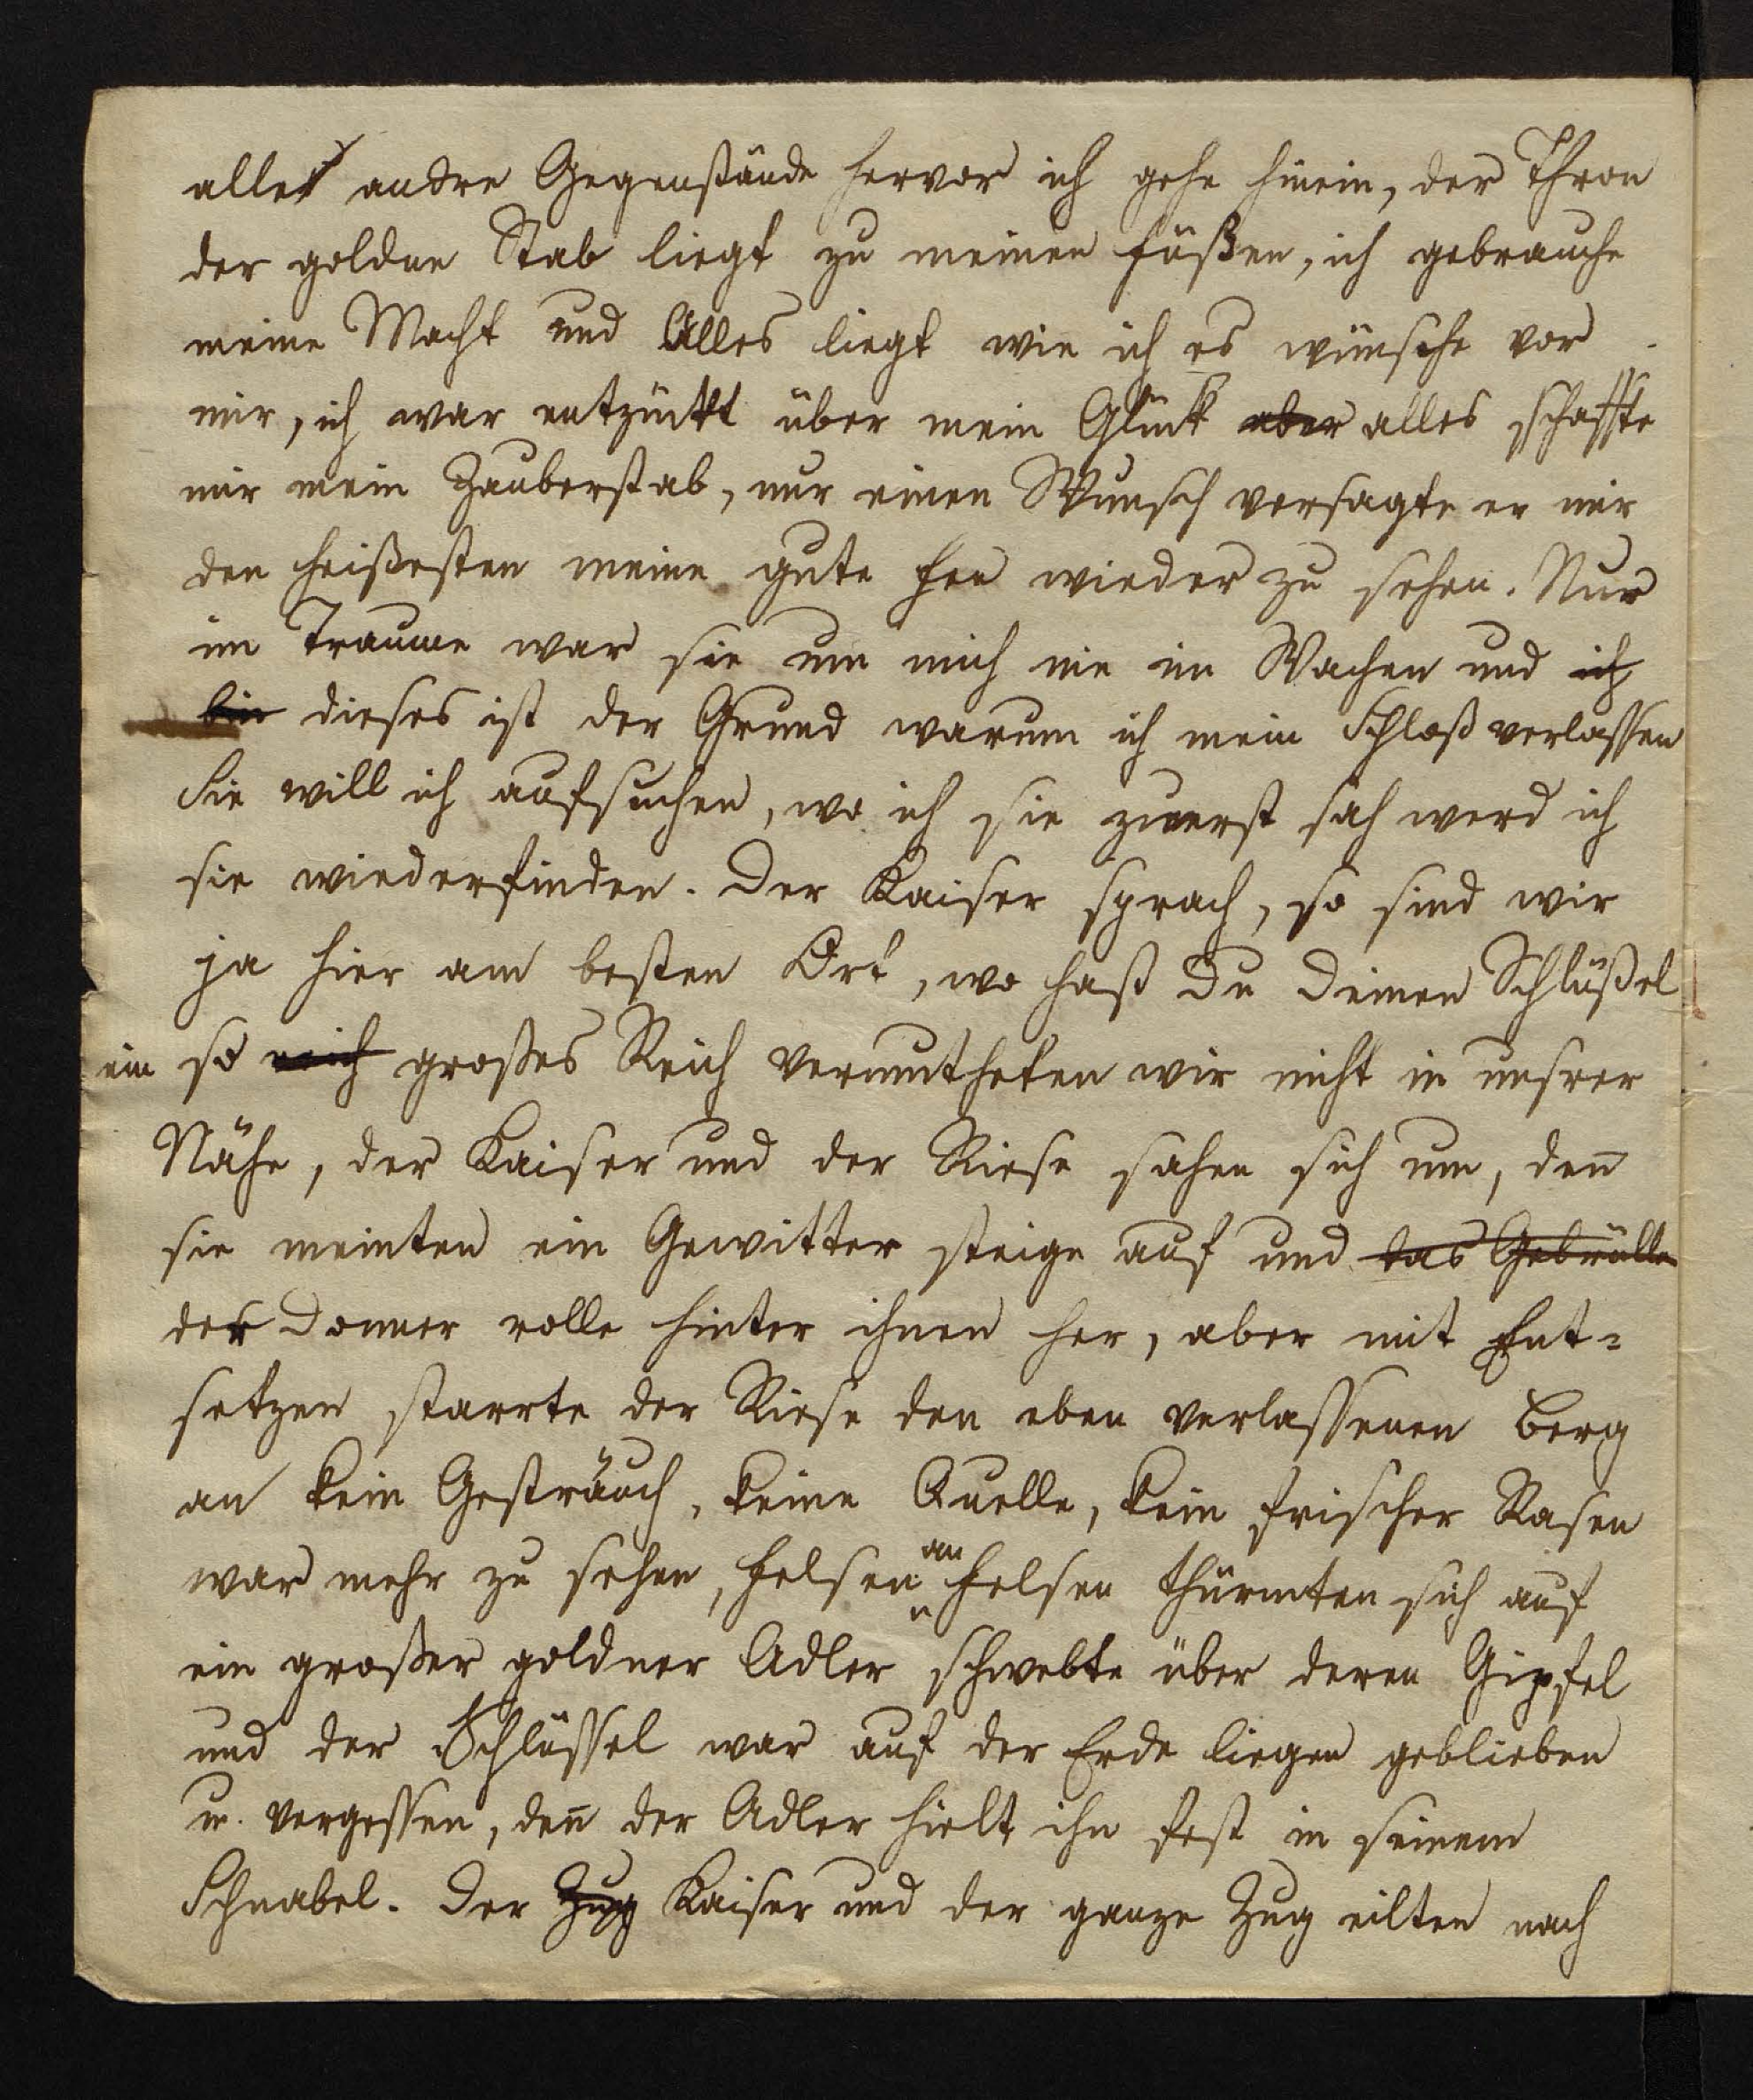 alle andre Gegenstände hervor ich gehe hinein, der Thron
der goldne Stab liegt zu meinen Füßen, ich gebrauche
meine Macht und Alles liegt wie ich es wünsche vor
mir, ich war entzückt über mein Glück aber alles schaffte
mir mein Zauberstab, nur einen Wunsch versagte er mir
den heißesten meine gute Fee wieder zu sehen. Nur
im Traume war sie um mich nie im Wachen und ich
bin dieses ist der Grund warum ich mein Schloß verlassen
Sie will ich aufsuchen, wo ich sie zuerst sah werd ich
sie wiederfinden. Der Kaiser sprach, so sind wir
ja hier am besten Ort, wo hast Du Deinen Schlüßel
ein so reich großes Reich vermutheten wir nicht in unsrer
Nähe, der Kaiser und der Riese sahen sich um, den̄
sie meinten ein Gewitter steige auf und das Gebrülle
der Donner rolle hinter ihnen her, aber mit Ent=
setzen starrte der Riese den eben verlassenen Berg
an kein Gesträuch, keine Quelle, kein frischer Rasen
war mehr zu sehen, Felsen an Felsen thürmten sich auf
ein großer goldner Adler schwebte über deren Gipfel
und der Schlüssel war auf der Erde liegen geblieben
u. vergessen, den̄ der Adler hielt ihn fest in seinem
Schnabel. Der Zug Kaiser und der ganze Zug eilten nach